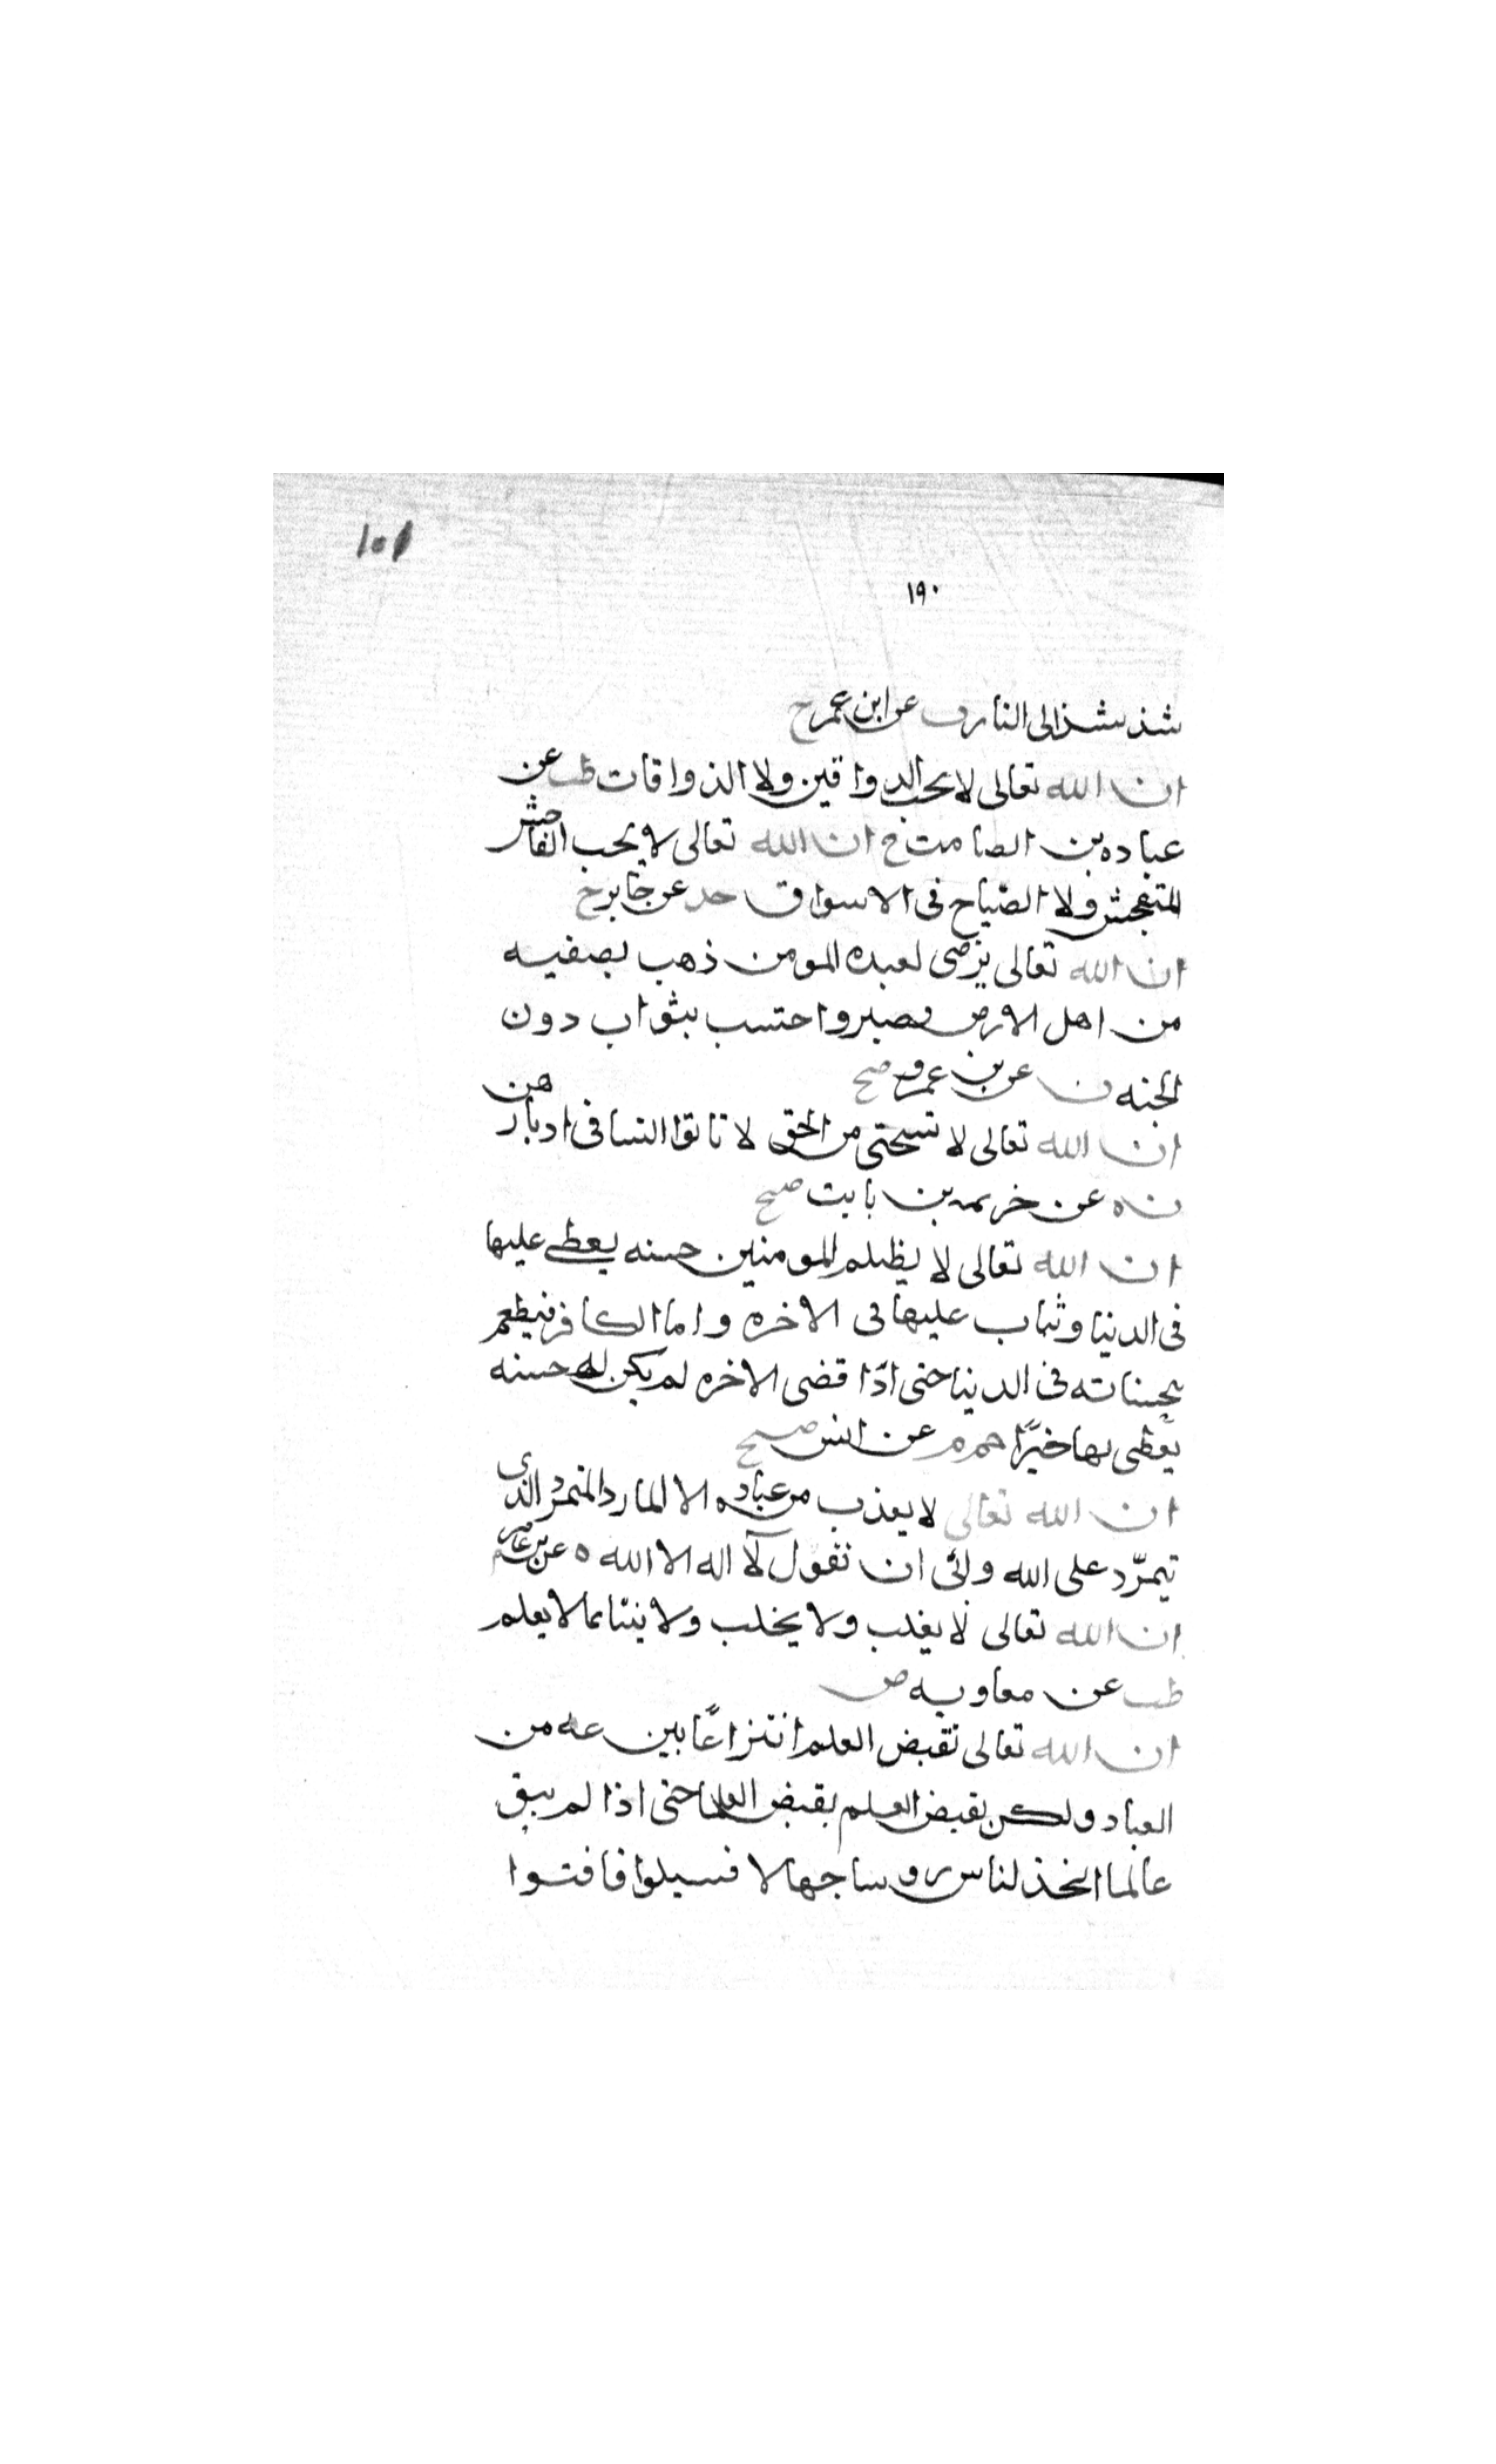 ١٥١
١٩٠
شذ شذ الى النار ت عن ابن عمر ح
ان الله تعالى لا يحب الدواقين ولا الذواقات طب عن
عباده بن الصامت ح ان الله تعالى لا يحب الفاحش
المتفحش ولا الصياح فى الاسواق خد عن جابر ح
ان الله تعالى يرضى لعبده المومن ذهب بصفيه
من اهل الارض فصبر واحتسب بثواب دون
الجنه ن عن بن عمرو صح
ان الله تعالى لا تستحى من الحق لا تاتوا النسا فى ادبارهن
ن ه عن خزيمه بن ثابت صح
ان الله تعالى لا يظلم المومنين حسنه يعطى عليها
فى الدنيا وثباب عليها فى الاخره واما الكافر فيطعم
بحسناته فى الدنيا حتى اذا قضى الاخره لم يكن له حسنه
يعطى بها خيرًا حم م عن انس صح
ان الله تعالى لا يعذب من عباده الا المارد المتمرد الذى
تيمرّد على الله ولئ ان تقول لآ اله الا الله ه عن بن عمر
ان الله تعالى لا يغلب ولا يخلب ولا ينبا بما لا يعلم
طب عن معاويه ض
ان الله تعالى تقبض العلم انتزاعًا بين عه من
العباد ولكن يقبض العلم بقبض العلما حتى اذا لم يبق
عالما اتخذ لناس روسا جهالا فسيلوا فافتوا